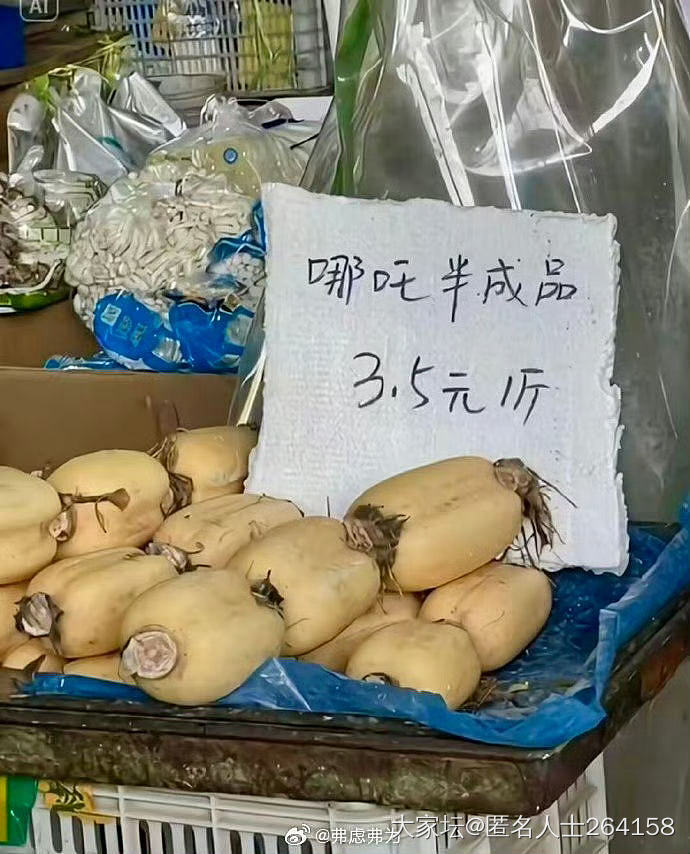 AI
哪吒半成品
3.5元1斤
@弗虑弗为
大家坛@匿名人士264158